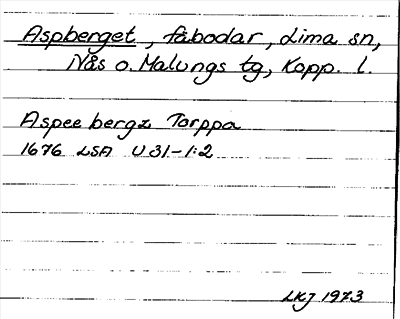 Aspberget, fäbodar, Lima sn,
Nås o. Malungs tg, Kopp. l.
Aspee bergz Torppa
1676 LSA U 31-1:2
LKJ 1973